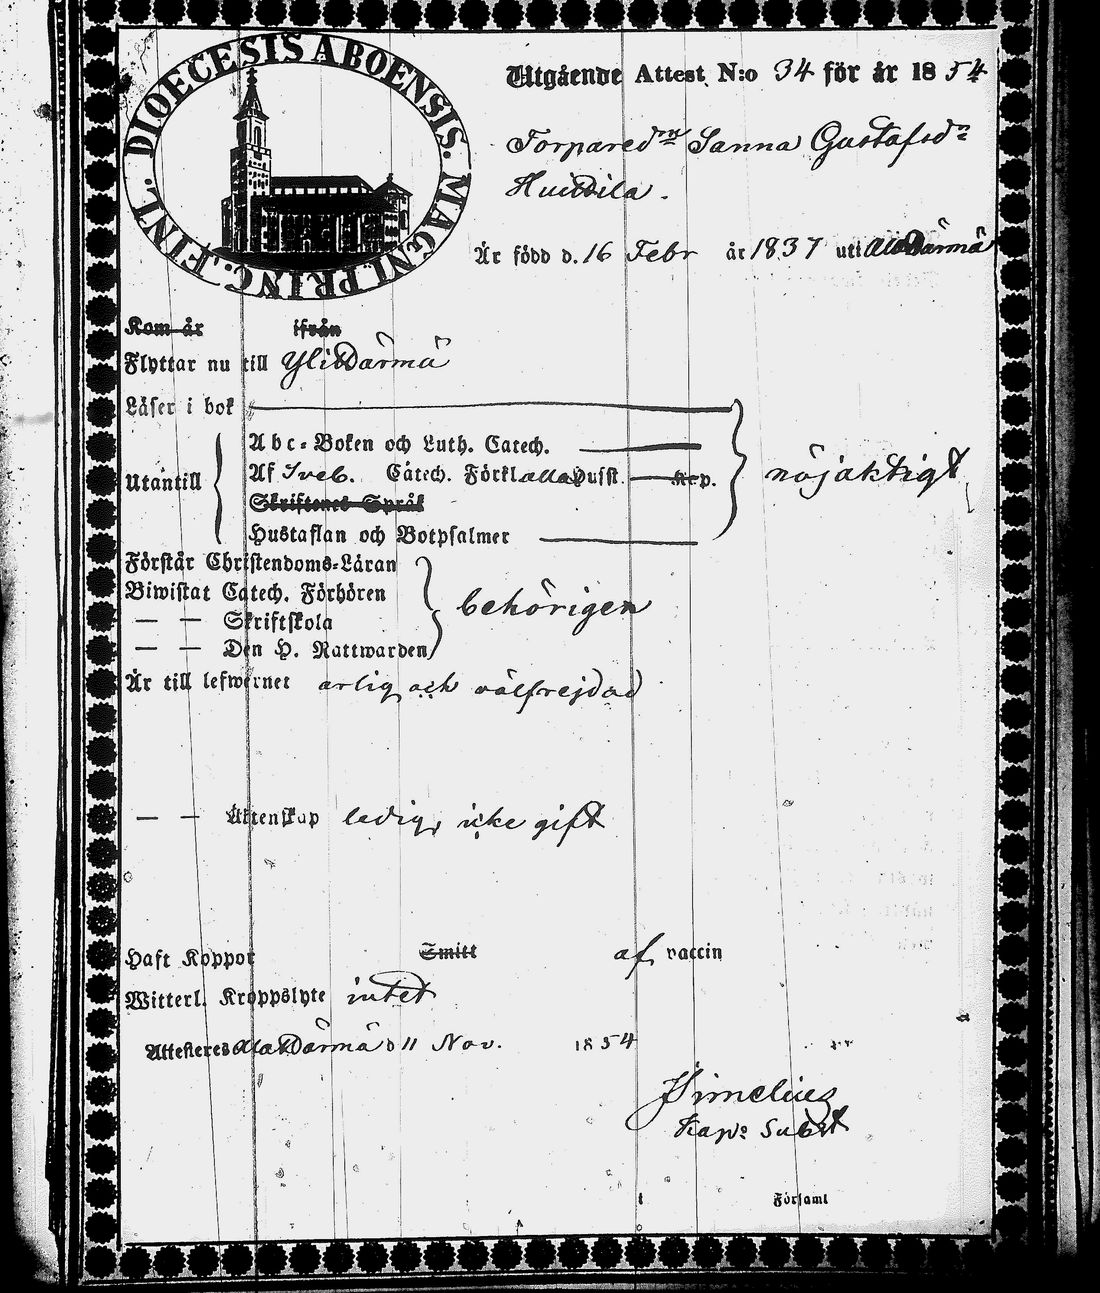 DIOECESIS ABOENSIS. MAGNI PRINC. FINL.
Utgående Attest N:o 34 för år 1854
Torparedrn Sanna Gustafsdr
Huidila.
Är född d. 16 Febr år 1837 uti Ala Därmä
Kom år ifrån
Flyttar nu till Yli Därmä
Läser i bok
Abc-Boken och Luth. Catech.
Utantill Af Sveb. Catech. Förkl. alla Husst. Kep. nöjaktigt
Skriftenes Språk
Hustaflan och Botpsalmer
Förstår Christendoms-Läran
Biwistat Catech. Förhören behörigen
— — Skriftskola
— — Den H. Nattwarden
Är till lefwernet ärlig och välfrejdad
— — Äktenskap ledig, icke gift
Haft Koppor Smitt af vaccin
Witterl. Kroppslyte intet
Attesteres Ala Därmä d 11 Nov. 1854
Simelius
Kap: Subst
i Församl